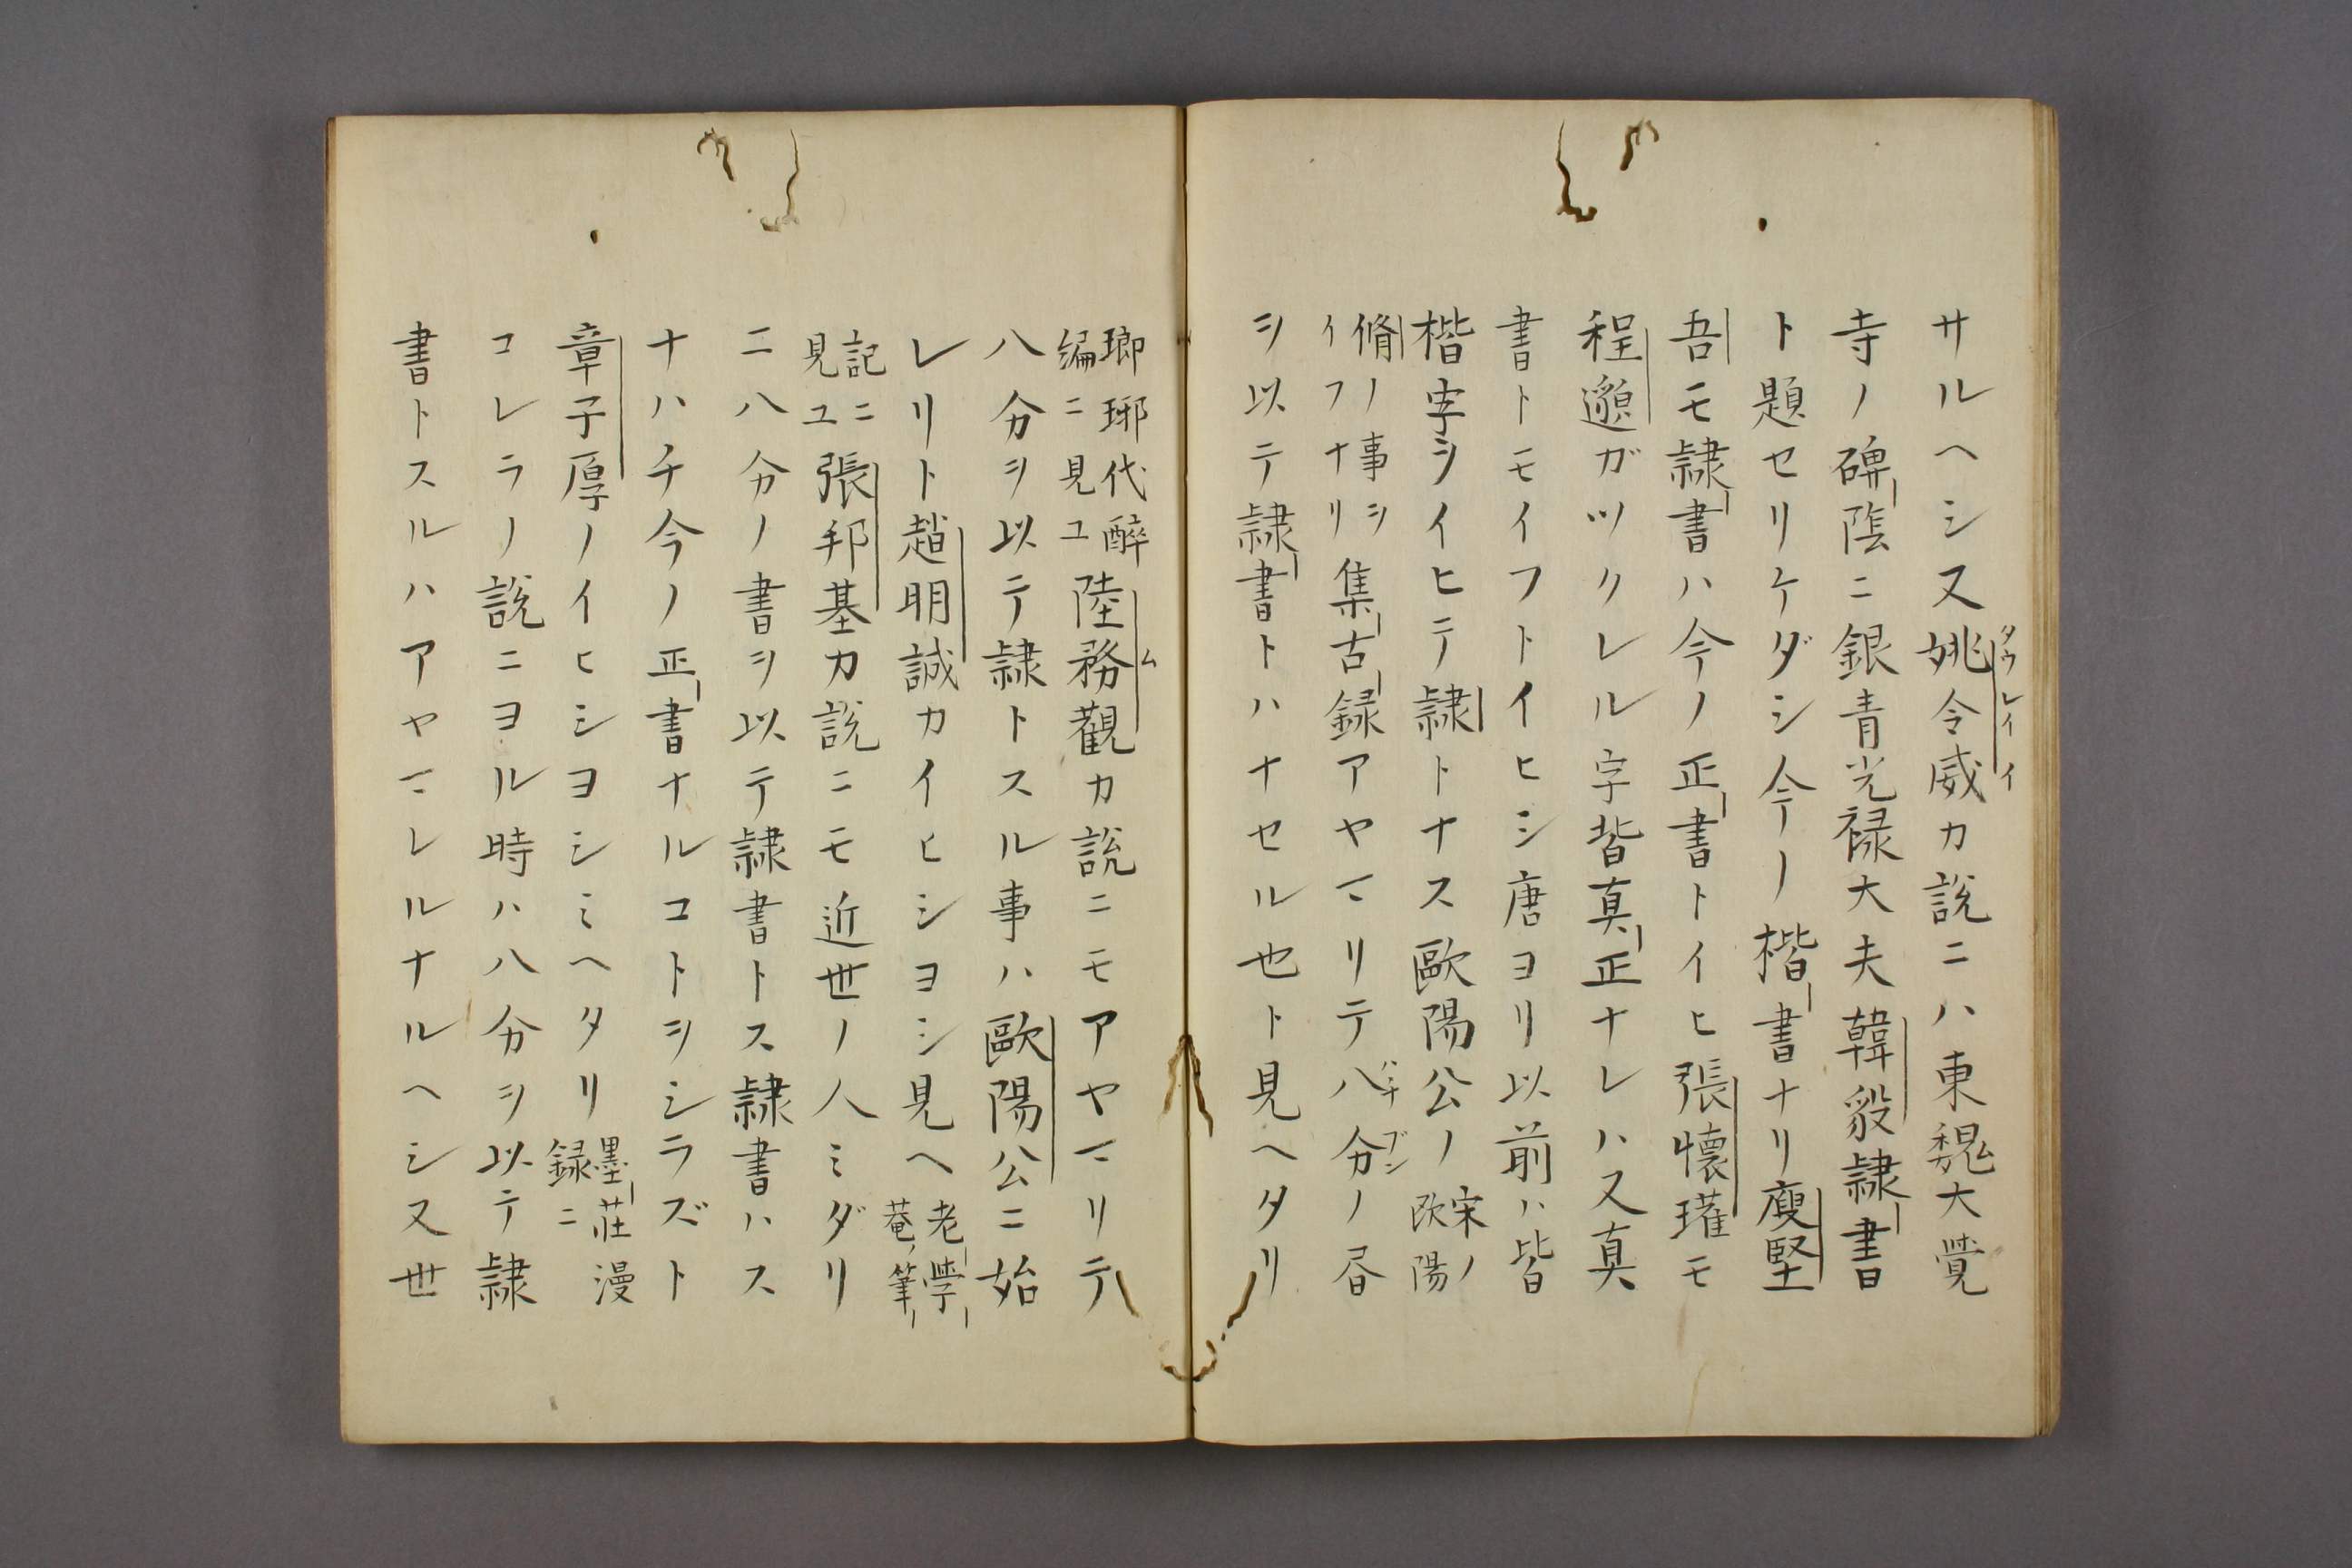 サルヘシ又姚令威カ説ニハ東魏大覺
寺ノ碑陰ニ銀青光禄大夫韓毅隷書
ト題セリケダシ今ノ楷書ナリ廋堅
吾モ隷書ハ今ノ正書トイヒ張懐瓘モ
程邈ガツクレル字皆真正ナレハ又真
書トモイフトイヒシ唐ヨリ以前ハ皆
楷字ヲイヒテ隷トナス歐陽公ノ宋ノ欧陽
脩ノ事ヲイフナリ集古録アヤマリテ八分ノ昏
ヲ以テ隷書トハナセル也ト見ヘタリ
瑯琊代醉編ニ見ユ陸務觀カ説ニモアヤマリテ
八分ヲ以テ隷トスル事ハ歐陽公ニ始
レリト趙明誠カイヒシヨシ見ヘ老學菴筆
記ニ見ユ張邦基カ説ニモ近世ノ人ミダリ
ニ八分ノ書ヲ以テ隷書トス隷書ハス
ナハチ今ノ正書ナルコトヲシラズト
章子厚ノイヒシヨシミヘタリ墨莊漫録ニ
コレラノ説ニヨル時ハ八分ヲ以テ隷
書トスルハアヤマレルナルヘシ又世